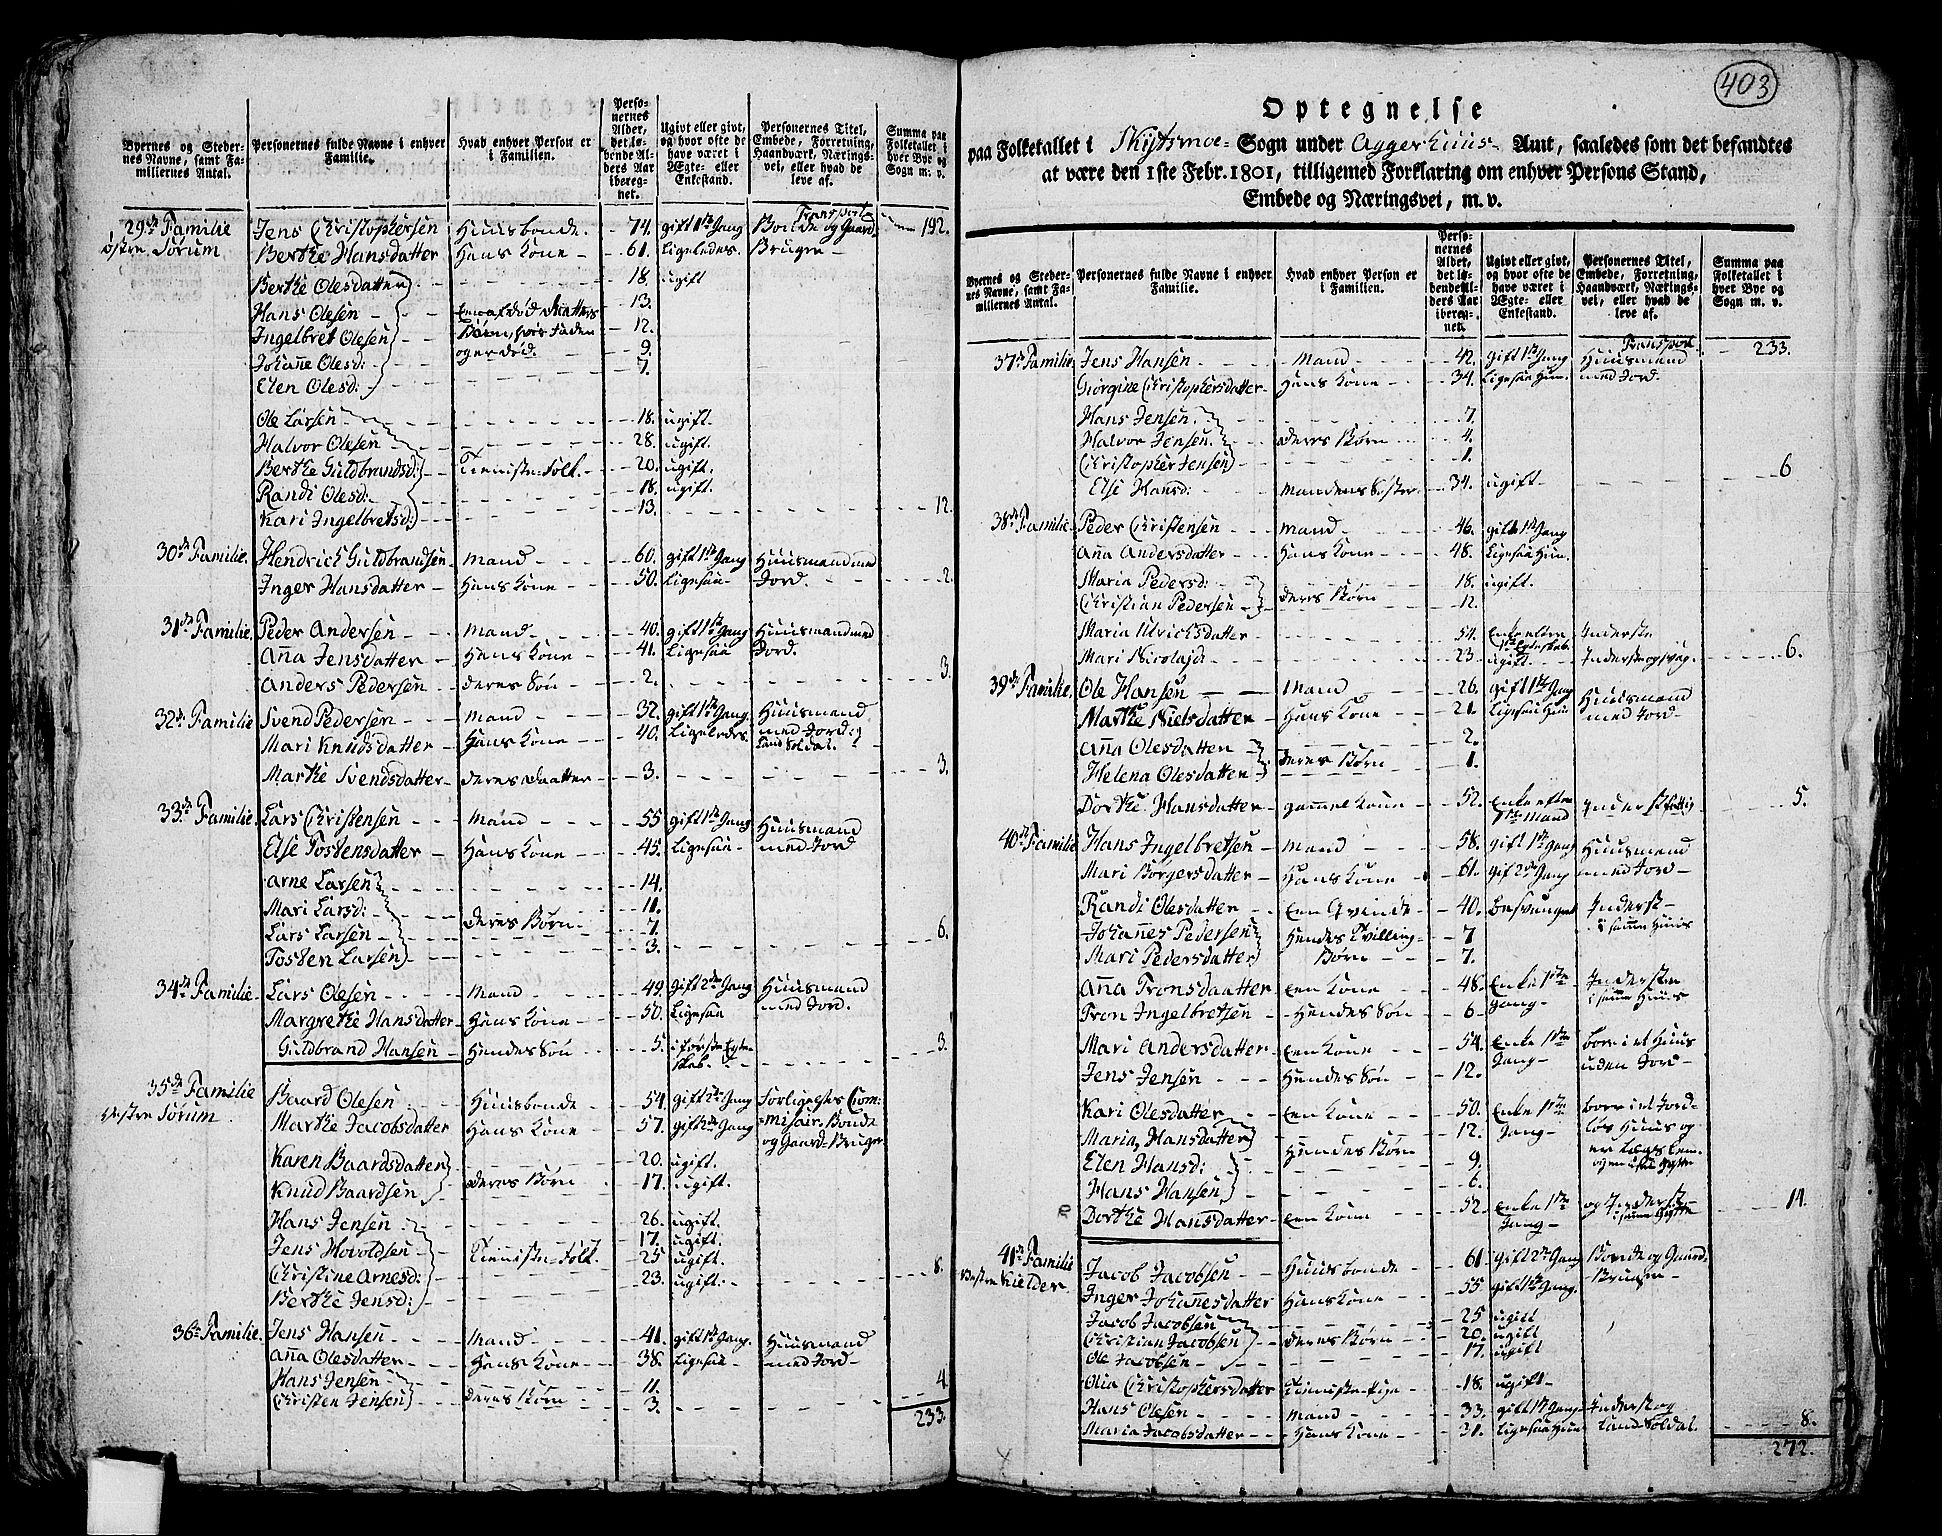 Byernes og Steder-
nes Navne, samt Fa-
miliernes Antal.
Personernes fulde Navne i enhver
Familie.
Hvad enhver Person er
i Familien.
Perso-
nernes
Alder,
det lø-
bende Al-
ders Aar
ibereg-
net.
Ugivt eller givt,
og hvor ofte de
have været i
Ægte- eller
Enkestand.
Personernes Titel,
Embede, Forretning,
Haandværk, Nærings-
vei, eller hvad de
leve af.
Summa paa
Folketallet i
hver Bye og
Sogn m. v.
Transport
29de Familie Jens Christophersen Huusbonde. 74. gift 1ste Gang Bonde og Gaard- 192.
østre Sørum Berthe Hansdatter Hans Kone 61. Ligeledes. Bruger
Berthe Olesdatter 18. ugift
Hans Olesen En afdød datters 13.
Ingelbret Olesen Børn, hvis Fader 12.
Johanne Olesd: og er død. 9.
Elen Olesd: 7.
Ole Larsen 18. ugift.
Halvor Olesen 28. ugift.
Berthe Guldbrandsd: Tienniste-Folk. 20. ugift.
Randi Olesd: 18. ugift.
Kari Ingelbretsd: 13. 12.
30de Familie. Hendrich Guldbrandsen Mand 60. gift 1ste Gang Huusmand med
Inger Hansdatter Hans Kone 50. Ligesaa Jord. 2.
31de Familie. Peder Andersen Mand 40. gift 1ste Gang Huusmand med
Anna Jensdatter Hans Kone 41. Ligesaa Jord.
Anders Pedersen deres Søn 2. 3.
32de Familie Svend Pedersen Mand 32. gift 1ste Gang. Huusmand
Mari Knudsdatter Hans Kone 40. Ligeledes med Jord og
Land Soldat.
Marthe Svendsdatter deres daatter 3. 3.
33de Familie. Lars Christensen Mand 55 gift 1ste Gang Huusmand
Else Tostensdatter Hans Kone 45. Ligesaa med Jord
Arne Larsen 14.
Mari Larsd: 11.
Lars Larsen deres Børn 7. 6.
Tosten Larsen 3.
34de Familie Lars Olesen Mand 49 gift 2den Gang Huusmand
Margrethe Hansdatter Hans Kone 50. Ligesaa med Jord.
Guldbrand Hansen Hendes Søn 5. i første Egte- 3.
skab.
35de Familie Baard Olesen Huusbonde 54. gift 2den Gang Forligelses Com-
Vestre Sørum. Marthe Jacobsdatter Hans Kone 57. gift 2den Gang missair, Bonde
og Gaard-Bruger
Karen Baardsdatter 20. ugift.
Knud Baardsen deres Børn 17. ugift.
Hans Jensen 26. ugift.
Jens Hovoldsen 17. ugift.
Christine Arnesd: Tienniste-Folk. 25 ugift. 8.
Berthe Jensd: 23. ugift.
36te Familie. Jens Hansen Mand 41. gift 1ste Gang. Huusmand
Anna Olesdatter Hans Kone 38. Ligesaa med Jord
Hans Jensen 11. 4.
Christen Jensen deres Børn 3.
233.
403
Optegnelse
paa Folketallet i Skydsmoe- Sogn under Aggerhuus- Amt, saaledes som det befandtes
at være den 1ste Febr. 1801, tilligemed Forklaring om enhver Persons Stand,
Embede og Næringsvei, m. v.
Byernes og Steder-
nes Navne, samt Fa-
miliernes Antal.
Personernes fulde Navne i enhver
Familie.
Hvad enhver Person er
i Familien.
Perso-
nernes
Alder,
det lø-
bende Al-
ders Aar
ibereg-
net.
Ugivt eller givt,
og hvor ofte de
have været i
Ægte- eller
Enkestand.
Personernes Titel,
Embede, Forretning,
Haandværk, Nærings-
vei, eller hvad de
leve af.
Summa paa
Folketallet i
hver Bye og
Sogn m. v.
Transport 233.
37te Familie Jens Hansen Mand 42. gift 1ste Gang Huusmand
Giørgine Christophersdatter Hans Kone 34. Ligesaa Hun. med Jord.
Hans Jensen 7.
Halvor Jensen. deres Børn 4.
Christopher Jensen 1.
Else Hansd: Mandens Søster 34. ugift 6
38te Familie. Peder Christensen Mand 46. gift 1ste Gang
Anna Andersdatter Hans Kone 48. Ligesaa Hun.
Maria Pedersd: 18. ugift.
Christian Pedersen deres Børn 12.
Maria Ulrichsdatter 54. Enke efter Inderste
1ste Egteskab.
Mari Nicolajd: 23 ugift Inderste og svag 6.
39te Familie. Ole Hansen Mand 26. gift 1ste Gang Huusmand
Marthe Nielsdatter Hans Kone 21. Ligesaa Hun med Jord
Anna Olesdatter 2.
Helena Olesdatter deres Børn 1.
Dorthe Hansdatter gammel Kone 52. Enke efter Inderst fattig 5.
1ste Mand
40de Familie Hans Ingelbretsen Mand 58. gift 1ste Gang Huusmand
Mari Borgersdatter Hans Kone 61. gif 2den Gang med Jord
Randi Olesdatter Een Qvinde 40. besvangret Inderst
i samme Huus
Johanes Pedersen Hendes Tvilling 7
Mari Pedersdatter Børn 7.
Anna Tronsdaatter Een Kone 48. Enke 1ste Inderste
Tron Ingelbretsen Hendes Søn 6 Gang i samme Huus
Mari Andersdatter Een Kone 54. Enke 1ste boer i et Huus
Jens Jensen Hendes Søn 12. Gang uden Jord
Kari Olesdatter Een Kone 50. Enke 1ste boer i et Jord-
Maria Hansdatter 12. Gang løs Huus og
Elen Hansd: Hendes Børn 9. er Lægs Lem
Hans Hansen 6.
Dorthe Hansdatter Een Kone 52. Enke 1ste og Inderste 14.
Gang
41de Familie Jacob Jacobsen Huusbonde 61 gift 2den Gang Bonde og Gaard-
Vestre Kielder Inger Johannesdatter Hans Kone 55 gift 1ste Gang. Bruger
Jacob Jacobsen 25 ugift
Christian Jacobsen deres Børn 20. ugift
Ole Jacobsen 17. ugift
Olia Christophersdatter Tienniste-Pige 18. ugift
Hans Olesen Mand 33. gift 1ste Gang Inderst og
Maria Jacobsdatter Hans Kone 31. Ligesaa Hun Land Soldat. 8.
272.